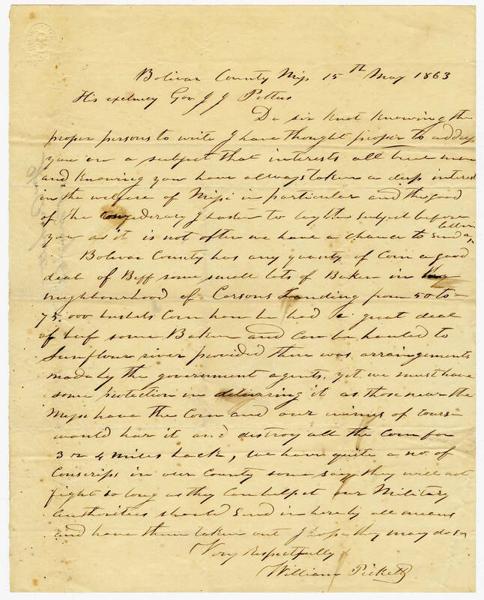 Bolivar County Mis 15th May 1863
His exelency Gov J J Pettus
De sir knot knowing the
proper persons to write I have thought proper to address
you on a subject that interests all true men
and knowing you have always taken a deep interest
in the welfare of Missi in particular and the good
of the confederacy I hasten to lay this subject before
you as it is not often we have a chance to send a letter
Bolivar County has any quenty of Corn a good
deal of Beff some small lots of Baken in
neighbourhood of Carsons Landing from 50 to
75,000 bushels Corn can be had a great deal
of beef some Baken and can be hauled to
Sunflour river provided there was arrangements
made by the government agents, yet we must have
some protection in delivering it as those near the
Miss have the Corn and our enimys of course
would har it and destroy all the Corn for
3 or 4 miles back, we have quite a no of
Conscrips in our County some say they will not
fight so long as they can help it our Military
Authorities should send in here by all means
and have them taken out I hope they may do so
Very Respectfully
William Pickett